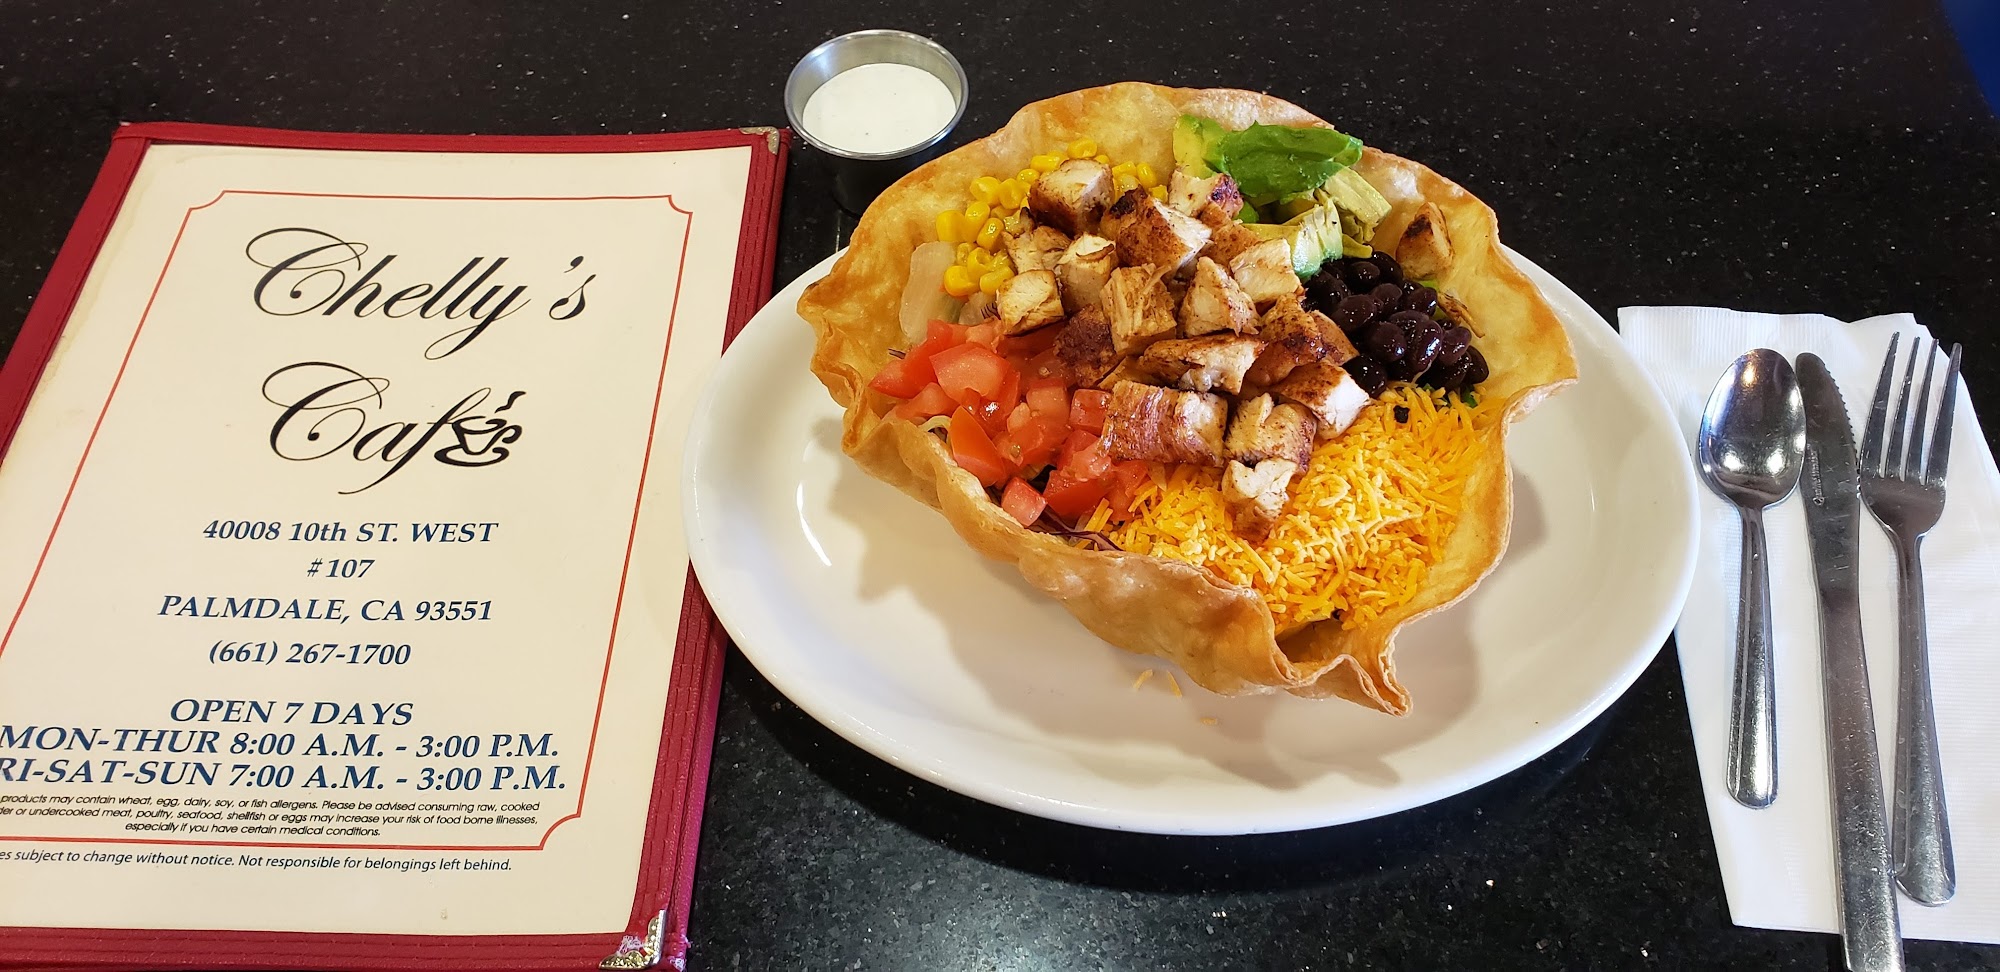 Chelly's
Café
40008 10th ST. WEST
#107
PALMDALE, CA 93551
(661) 267-1700
OPEN 7 DAYS
MON-THUR 8:00 A.M. - 3:00 P.M.
RI-SAT-SUN 7:00 A.M. - 3:00 P.M.
products may contain wheat, egg, dairy, soy, or fish allergens. Please be advised consuming raw, cooked
or undercooked meat, poultry, seafood, shellfish or eggs may increase your risk of food borne illnesses,
especially if you have certain medical conditions.
subject to change without notice. Not responsible for belongings left behind.